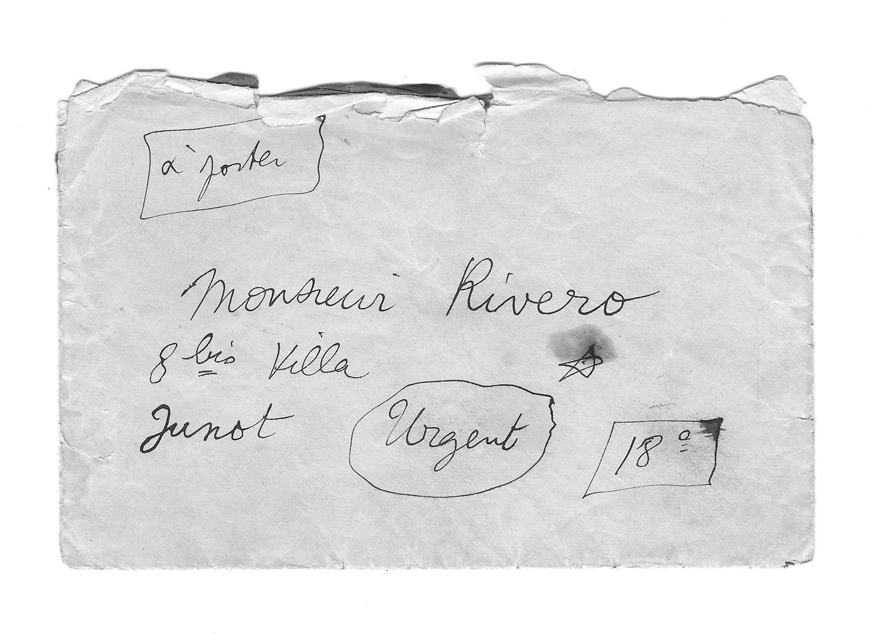 à porter
Monsieur Rivero
8 bis Villa
Junot
Urgent
18º